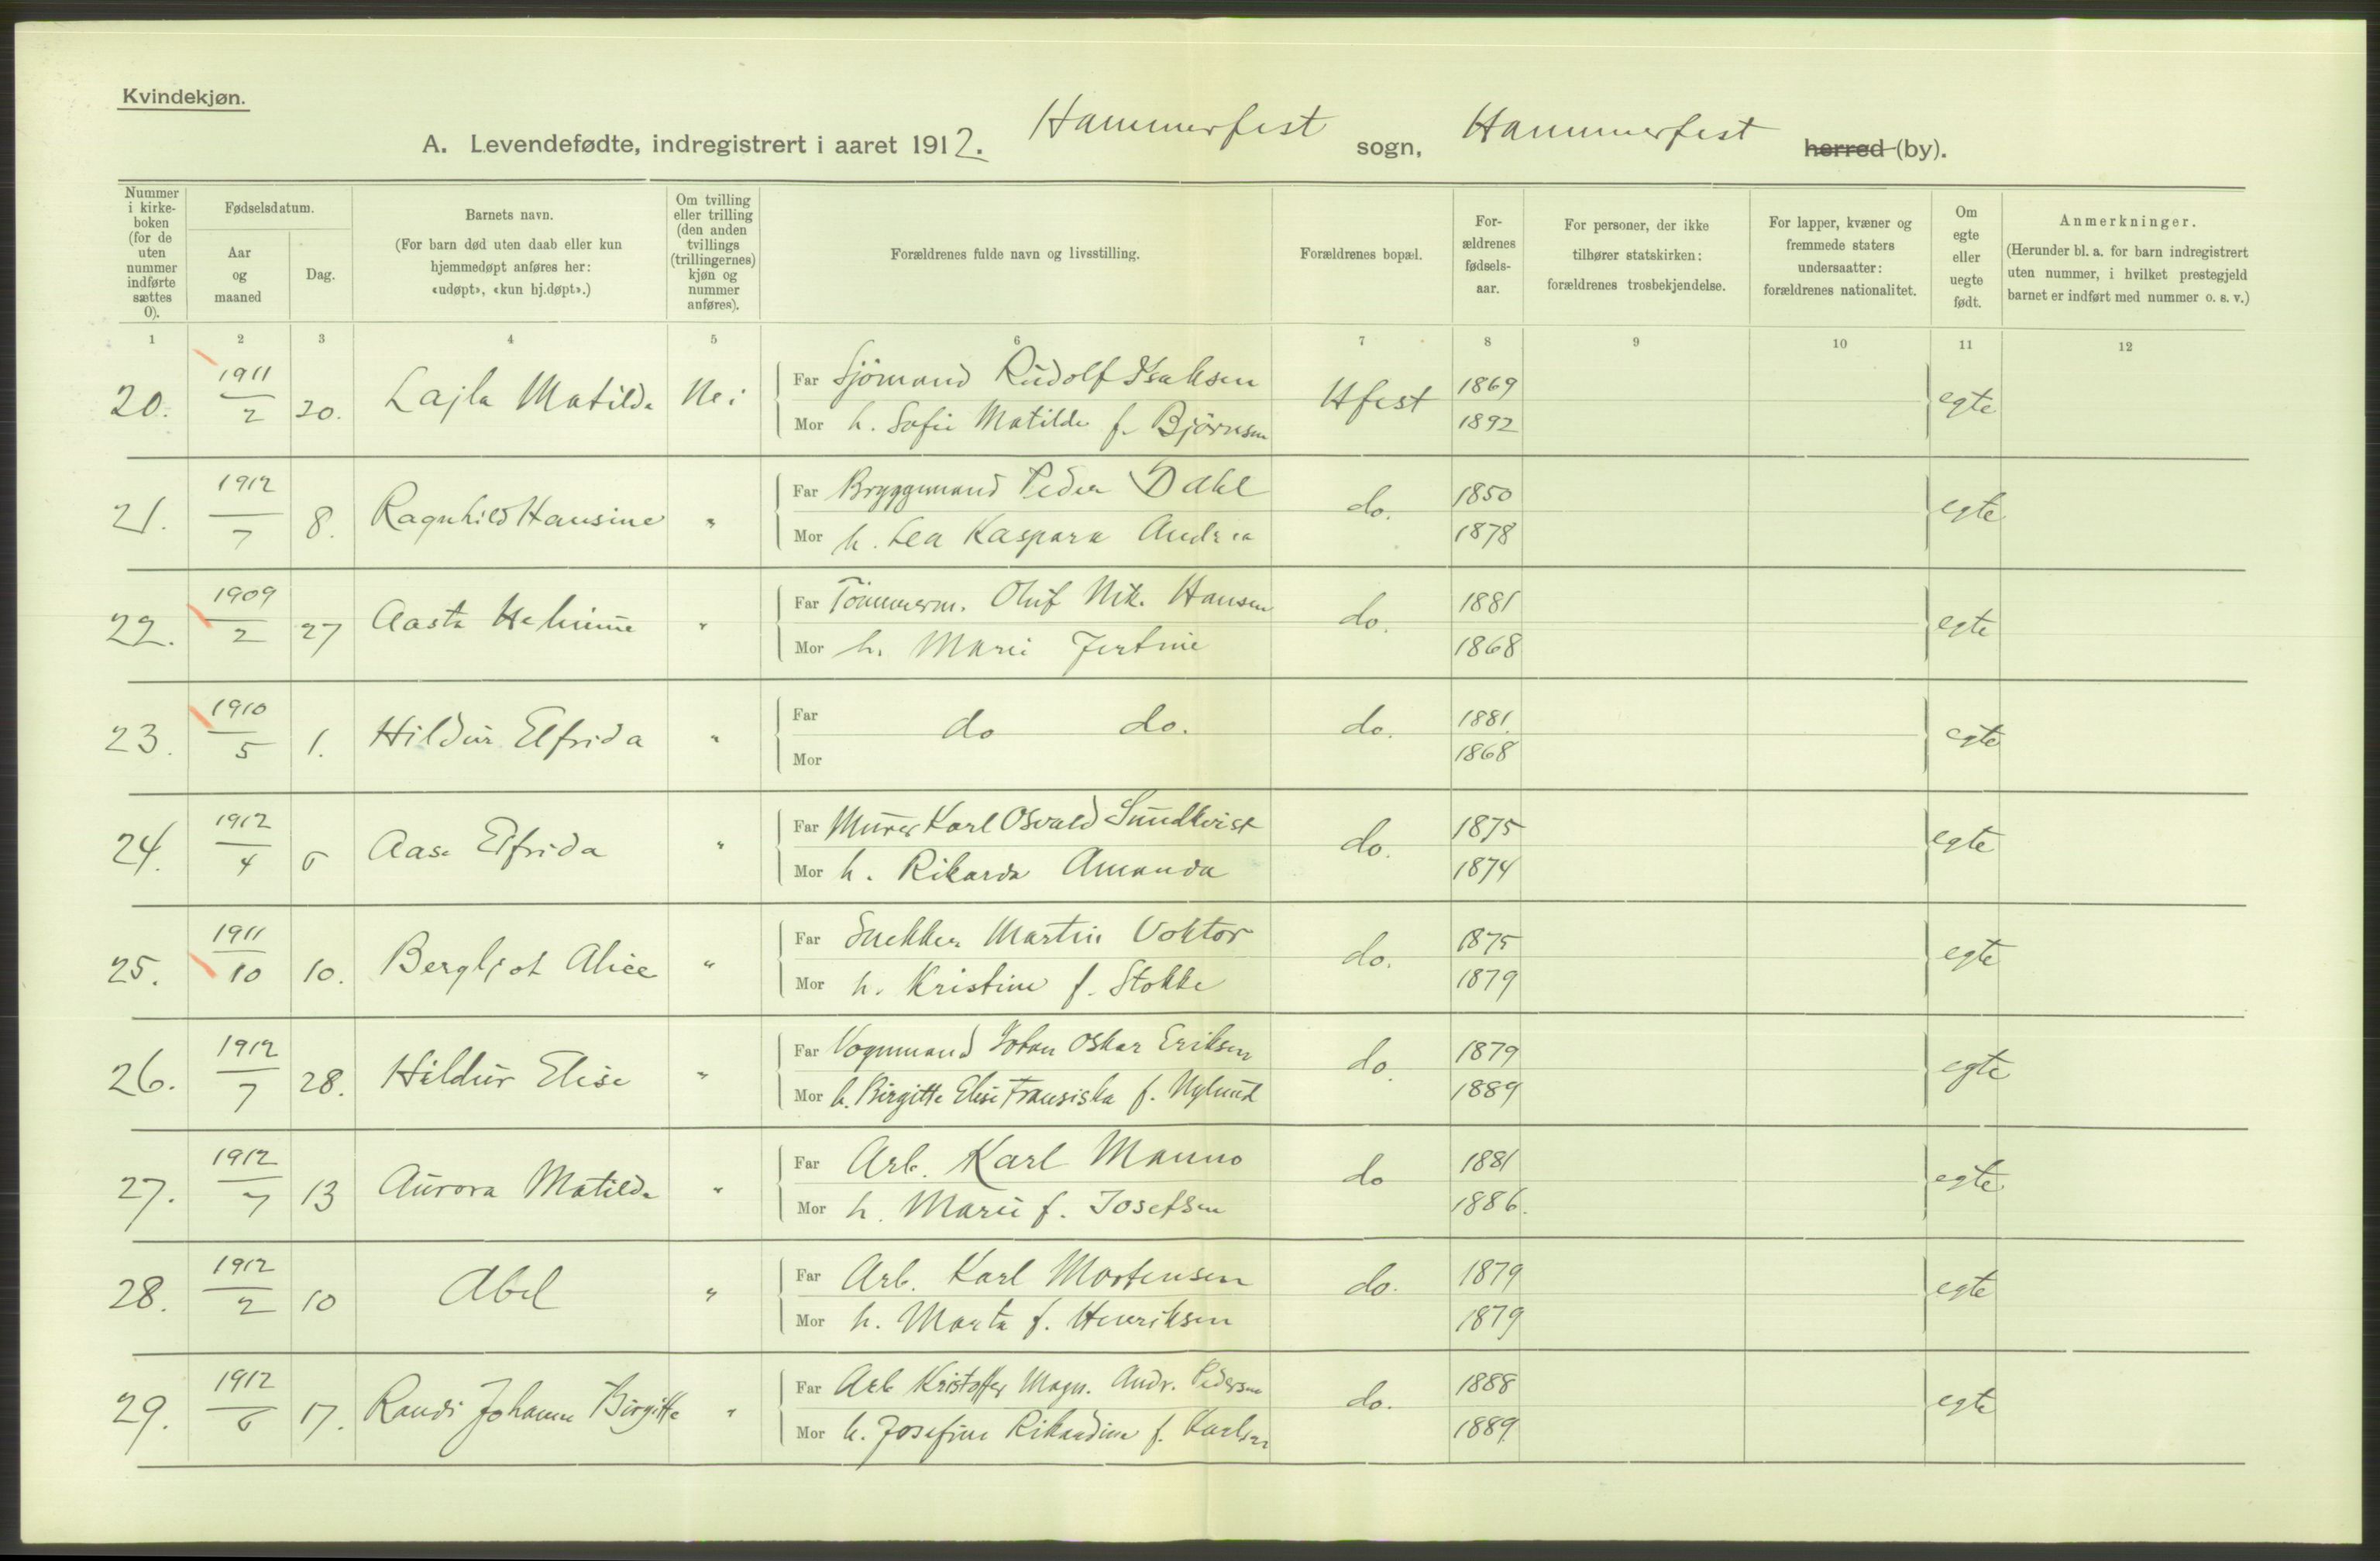 Kvindekjøn.
A. Levendefødte, indregistrert i aaret 1912. Hammerfest sogn, Hammerfest herred (by).
Nummer i kirke-boken (for de uten nummer indførte sættes 0).
Fødselsdatum.
Aar og maaned
Dag.
Barnets navn.
(For barn død uten daab eller kun hjemmedøpt anføres her: «udøpt», «kun hj.døpt».)
Om tvilling eller trilling (den anden tvillings (trillingernes) kjøn og nummer anføres).
Forældrenes fulde navn og livsstilling.
Forældrenes bopæl.
For-ældrenes fødsels-aar.
For personer, der ikke tilhører statskirken: forældrenes trosbekjendelse.
For lapper, kvæner og fremmede staters undersaatter: forældrenes nationalitet.
Om egte eller uegte født.
Anmerkninger.
(Herunder bl. a. for barn indregistrert uten nummer, i hvilket prestegjeld barnet er indført med nummer o. s. v.)
1 2 3 4 5 6 7 8 9 10 11 12
20. 1911/2 20. Lajla Matilda Nei Far Sjömand Rudolf Isaksen Hfest 1869 egte
Mor h. Sofie Matilde f. Björnsen 1892
21. 1912/7 8. Ragnhild Hansine " Far Bryggemand Peder Dahl do. 1850 egte
Mor h. Lea Kaspara Andrea 1878
22. 1909/2 27 Aasta " Far Tömmerm. Oluf Nik. Hansen do. 1881 egte
Mor h. Marie 1868
23. 1910/5 1. Hildur Elfrida " Far do do. do. 1881. egte
Mor 1868
24. 1912/4 6 Aase Elfrida " Far Murer Karl Osvald Sundkvist do. 1875 egte
Mor h. Rikarda Amanda 1874
25. 1911/10 10. Bergljot Alice " Far Snekker Martin Voktor do. 1875 egte
Mor h. Kristine f. Stokke 1879
26. 1912/7 28. Hildur Elise " Far Vognmand Johan Oskar Eriksen do. 1879 egte
Mor h. Birgitte Elise Fransiska f. Nylund 1889
27. 1912/7 13 Aurora Matilda " Far Arb. Karl Manno do 1881 egte
Mor h. Marie f. Josefsen 1886.
28. 1912/2 10 Abel " Far Arb. Karl Mortensen do. 1879 egte
Mor h. Marta f. Henriksen 1879
29. 1912/6 17. Randi Johanne Birgitte " Far Arb Kristoffer Magn. Andr. Pedersen do. 1888 egte
Mor h. Josefine Rikardine f. Karlsen 1889